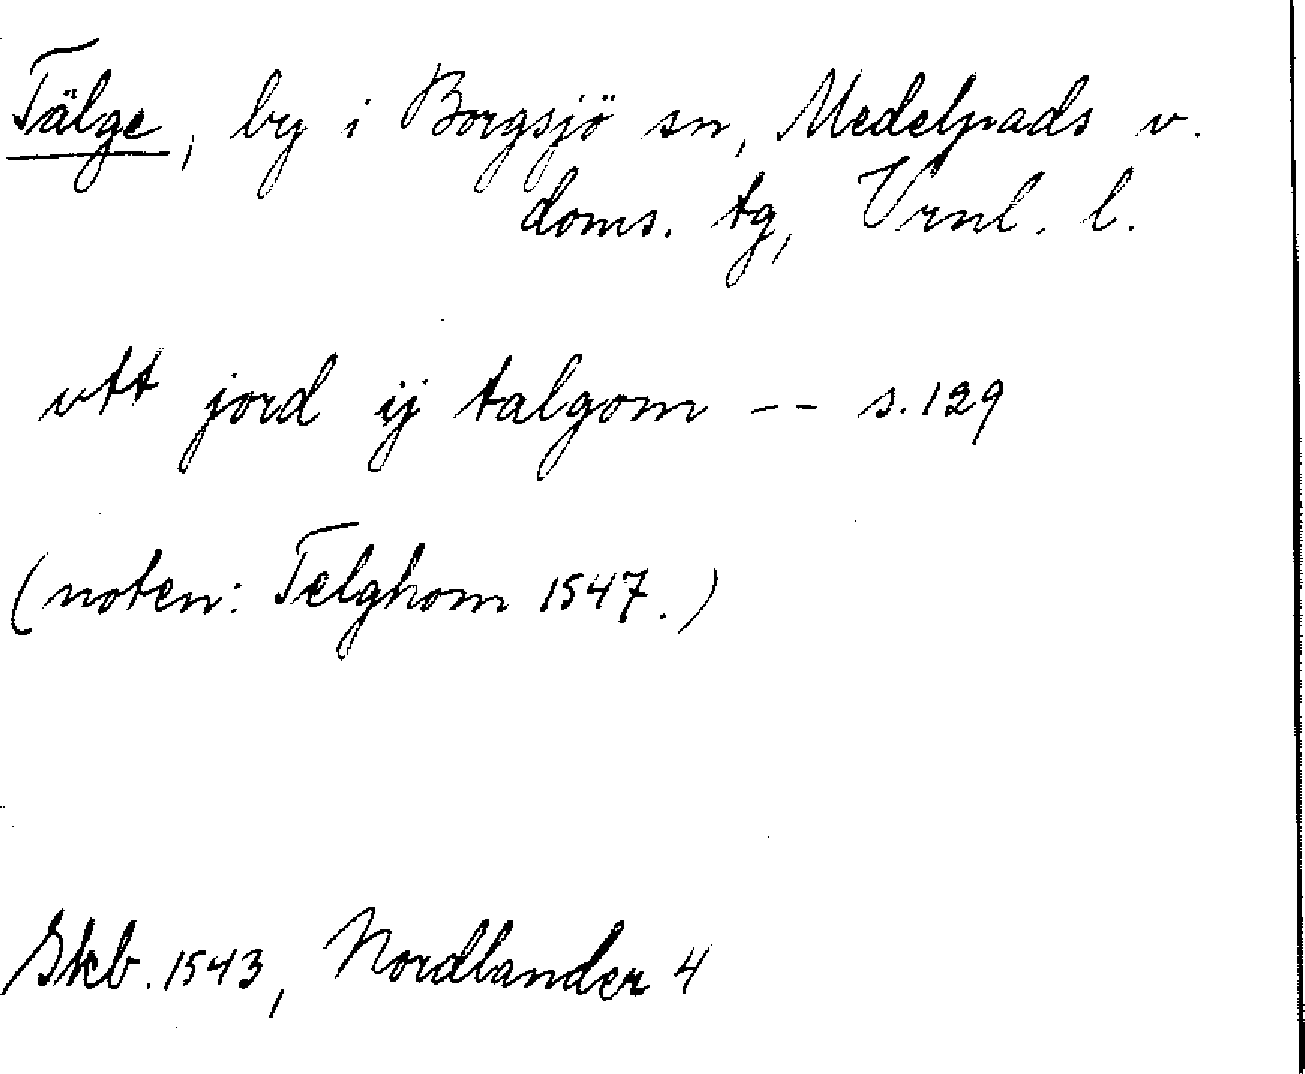 Tälge, by i Borgsjö sn, Medelpads v.
doms. tg, Vrnl. l.
vtt jord ij talgom -- s.129
(noten: Telghom 1547.)
Skb. 1543, Nordlander 4